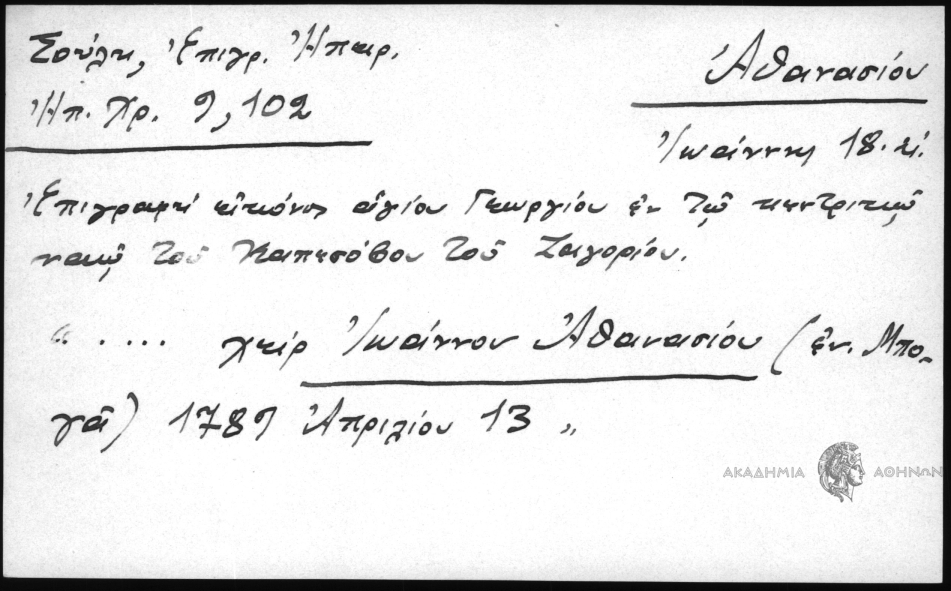 Σούλη, Ἐπιγρ. Ἠπειρ.
Ἠπ. Χρ. 9, 102
Ἀθανασίου
Ἰωάννης 18. αἰ.
Ἐπιγραφή εἰκόνος ἁγίου Γεωργίου ἐν τῷ κεντρικῷ
ναῷ τοῦ Καπεσόβου τοῦ Ζαγορίου.
“ .... χείρ Ἰωάννου Ἀθανασίου (ἐν. Μπο-
γᾶ) 1789 Ἀπριλίου 13 „
ΑΚΑΔΗΜΙΑ ΑΘΗΝΩΝ